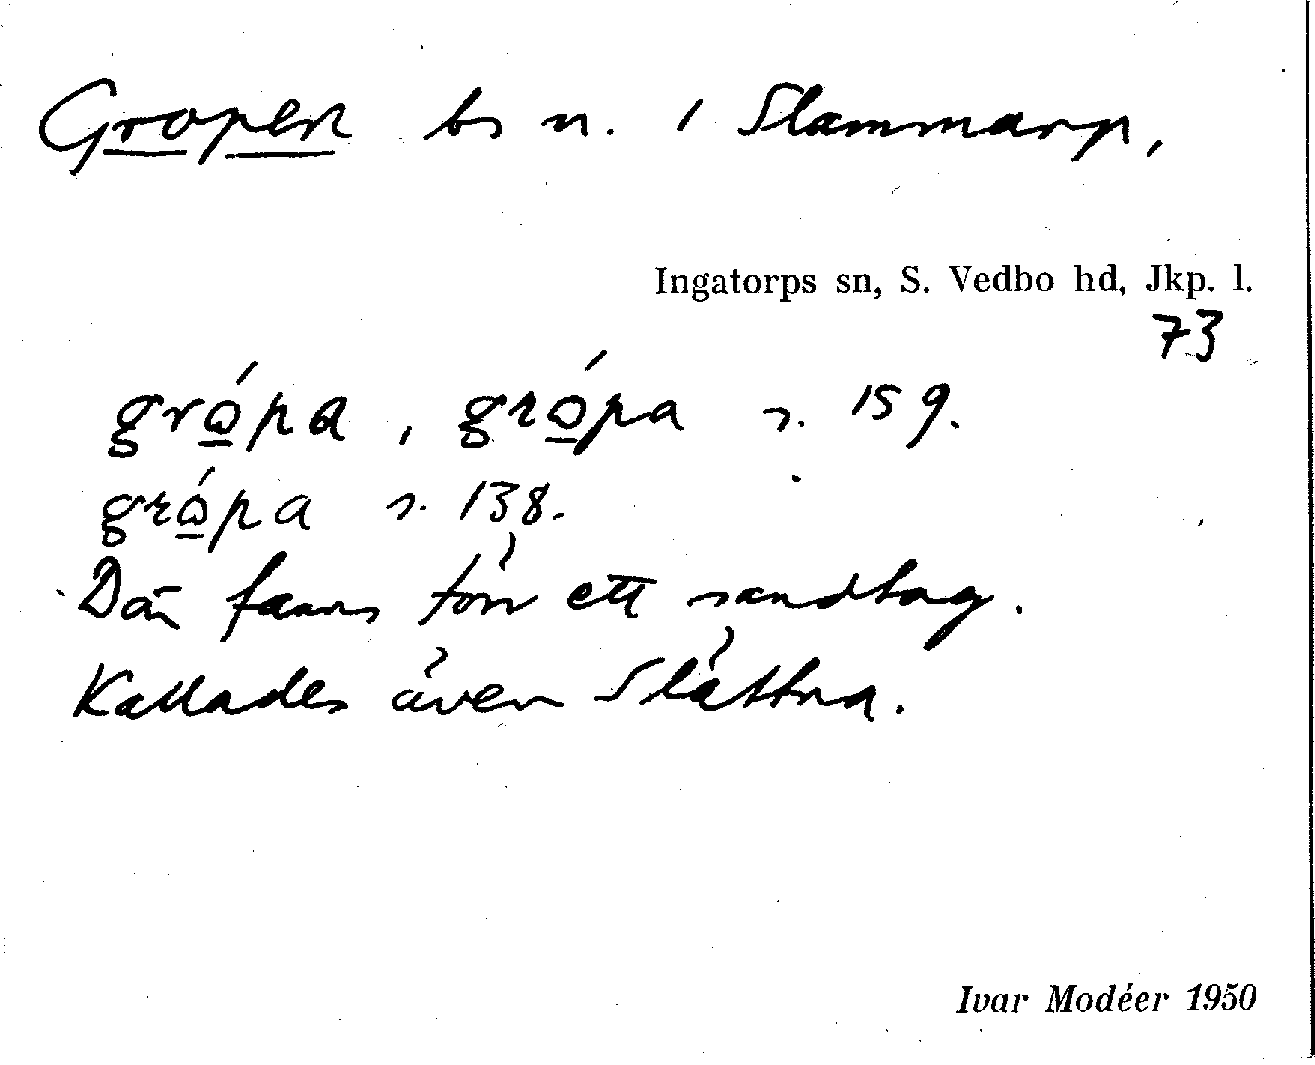 Gropen bs n. i Slammarp,
Ingatorps sn, S. Vedbo hd, Jkp. l.
73
gró̲pa, gró̲pa s. 159.
gró̲pa s. 138.
Där fanns förr ett sandtag.
Kallades även Slättna.
Ivar Modéer 1950